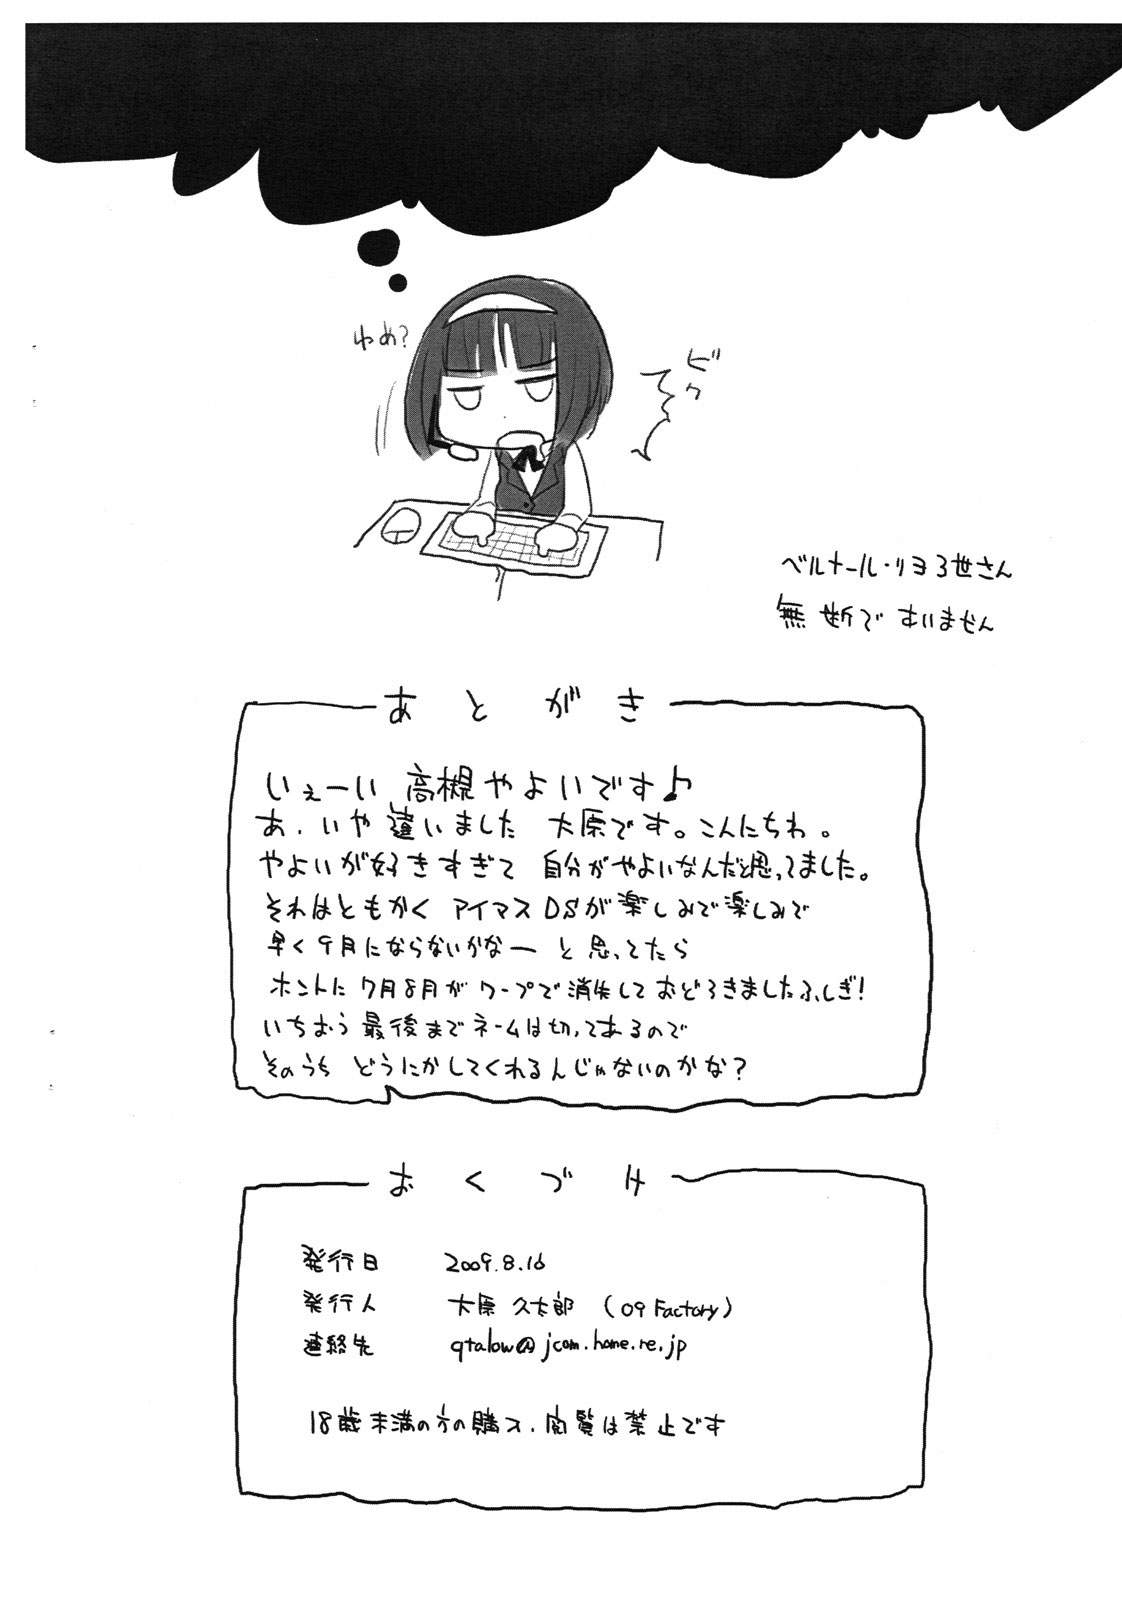 ゆめ?
ビク
ベルナール・リヨ3世さん
無断ですいません
あとがき
いぇーい 高槻やよいです♪
あ、いや違いました 大原です。こんにちわ。
やよいが好きすぎて 自分がやよいなんだと思ってました。
それはともかく アイマスDSが楽しみで楽しみで
早く9月にならないかなー と思ってたら
ホントに7月8月がワープで消失しておどろきましたふしぎ!
いちおう最後までネームは切ってあるので
そのうち どうにかしてくれるんじゃないのかな?
おくづけ
発行日 2009.8.16
発行人 大原 久太郎 (09 Factory)
連絡先 qtalow@jcom.home.ne.jp
18歳未満の方の購入、閲覧は禁止です